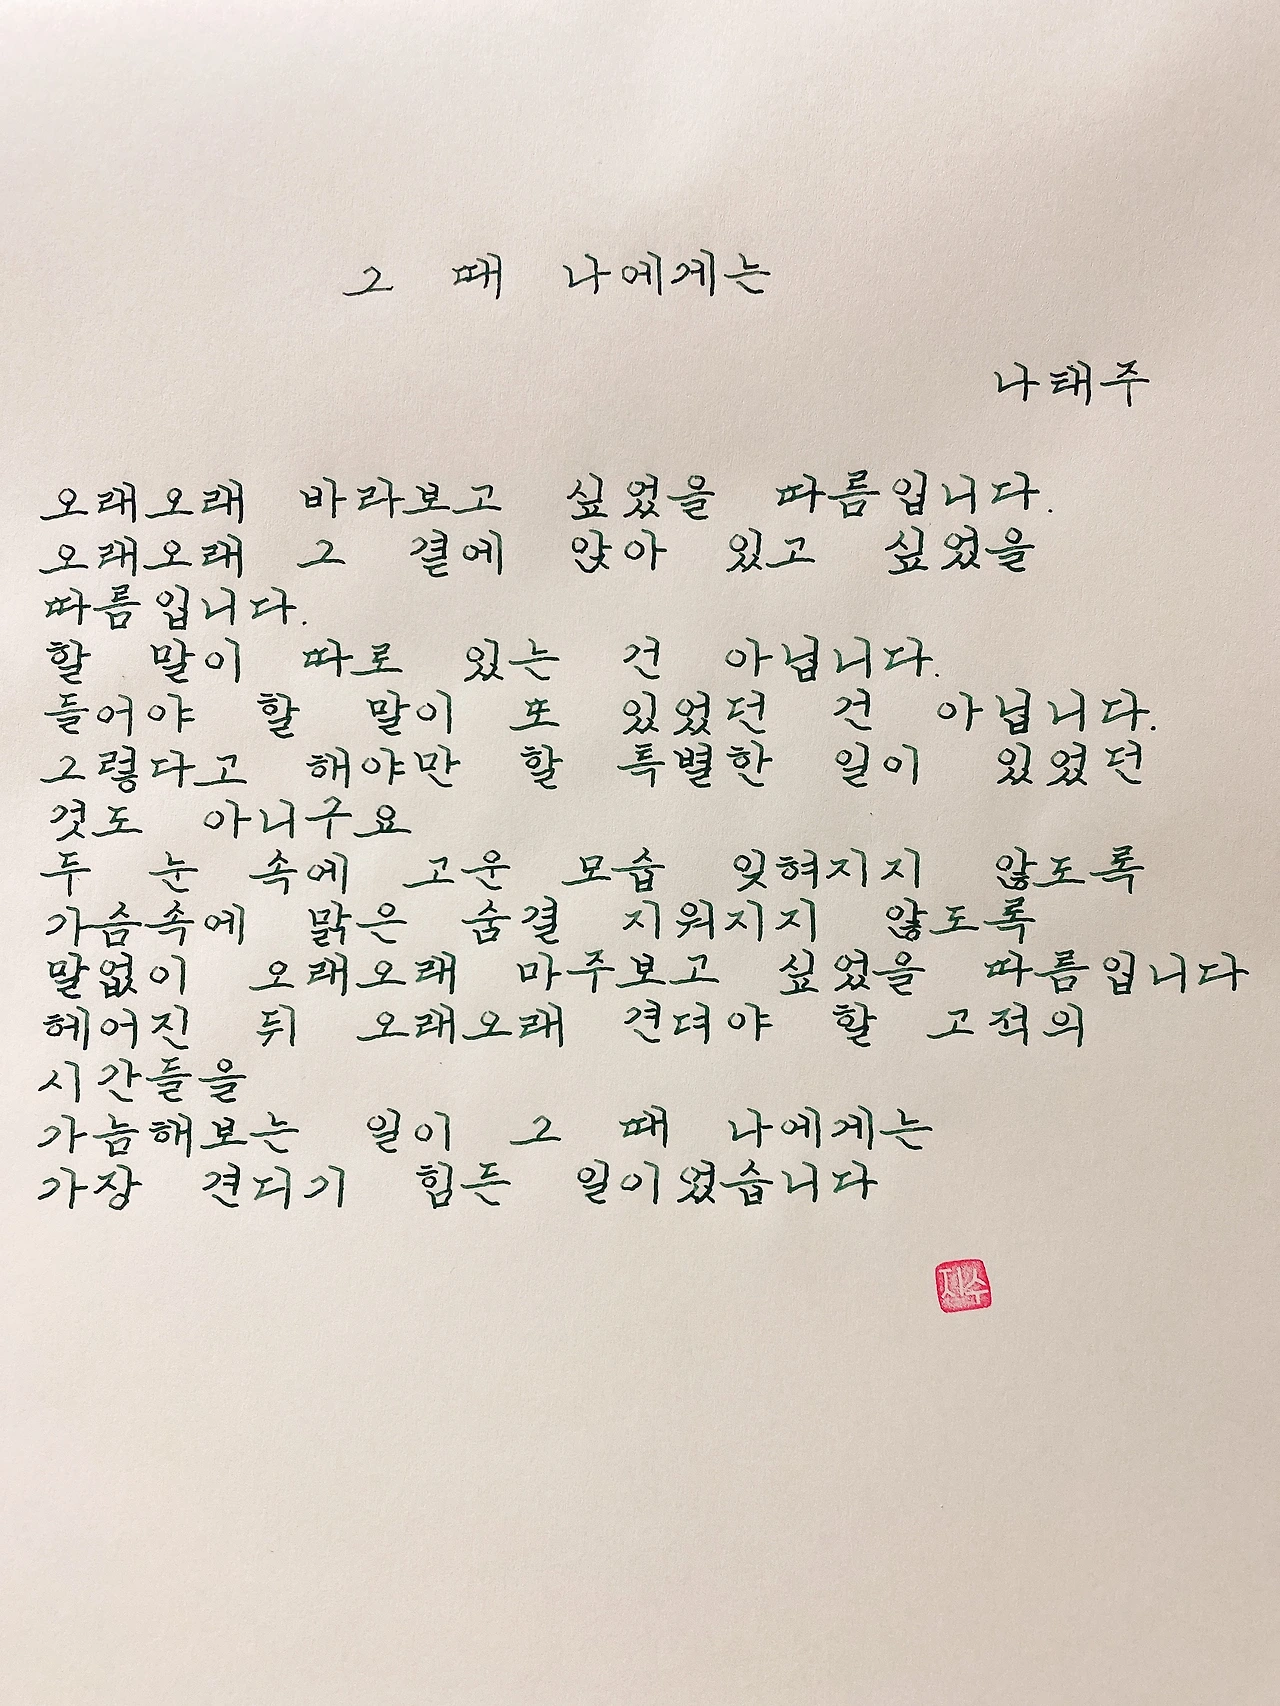 그 때 나에게는
나태주
오래오래 바라보고 싶었을 따름입니다.
오래오래 그 곁에 앉아 있고 싶었을
따름입니다.
할 말이 따로 있는 건 아닙니다.
들어야 할 말이 또 있었던 건 아닙니다.
그렇다고 해야만 할 특별한 일이 있었던
것도 아니구요
두 눈 속에 고운 모습 잊혀지지 않도록
가슴속에 맑은 숨결 지워지지 않도록
말없이 오래오래 마주보고 싶었을 따름입니다
헤어진 뒤 오래오래 견뎌야 할 고적의
시간들을
가늠해보는 일이 그 때 나에게는
가장 견디기 힘든 일이었습니다
지수